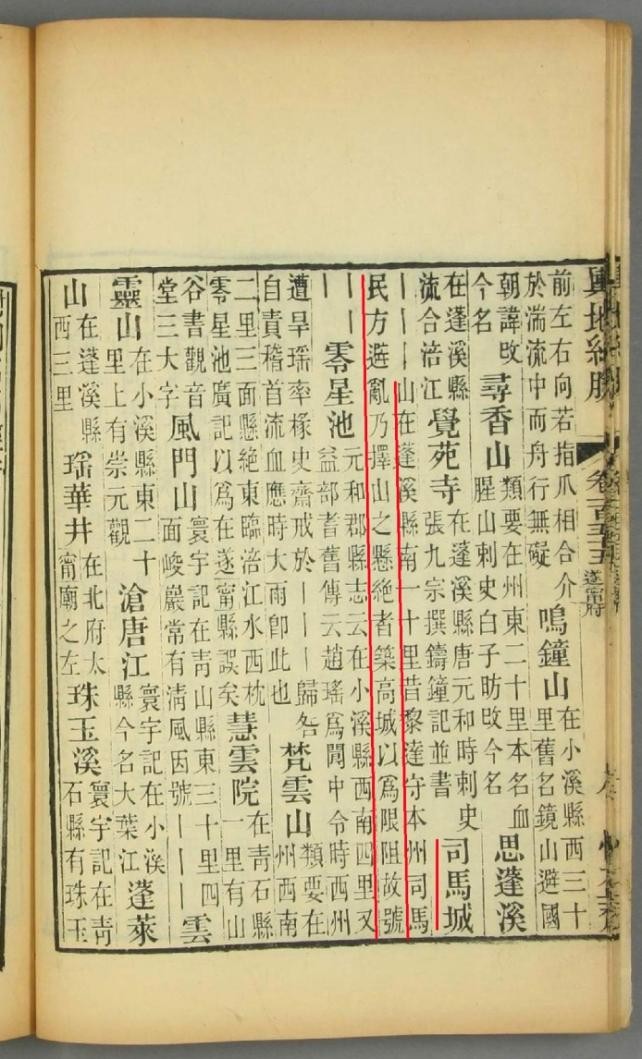 輿地紀勝 卷一百五十五 遂甯府
前左右向若指爪相合介於湍流中而舟行無礙 鳴鐘山 在小溪縣西三十里舊名鏡山避國
朝諱改今名 尋香山 類要在州東二十里本名血腥山刺史白子昉改今名 思蓬溪
在蓬溪縣流合涪江 覺苑寺 在蓬溪縣唐元和時刺史張九宗撰鑄鐘記並書 司馬城
｜｜｜山在蓬溪縣南一十里昔黎達守本州司馬民方避亂乃擇山之懸絕者築高城以爲限阻故號
｜｜｜ 零星池 元和郡縣志云在小溪縣西南四里又益部耆舊傳云趙瑤爲閬中令時西州
遭旱瑤率椽史齋戒於｜｜｜歸咎自責稽首流血應時大雨卽此也 梵雲山 類要在州西南
二里三面懸絕東臨涪江水西枕零星池廣記以爲在遂甯縣誤矣 慧雲院 在青石縣一里有山
谷書觀音堂三大字 風門山 寰宇記在青山縣東三十里四面峻巖常有清風因號｜｜｜ 雲
靈山 在小溪縣東二十里上有崇元觀 滄唐江 寰宇記在小溪縣今名大葉江 蓬萊
山 在蓬溪縣西三里 瑶華井 在北府太甯廟之左 珠玉溪 寰宇記在青石縣有珠玉